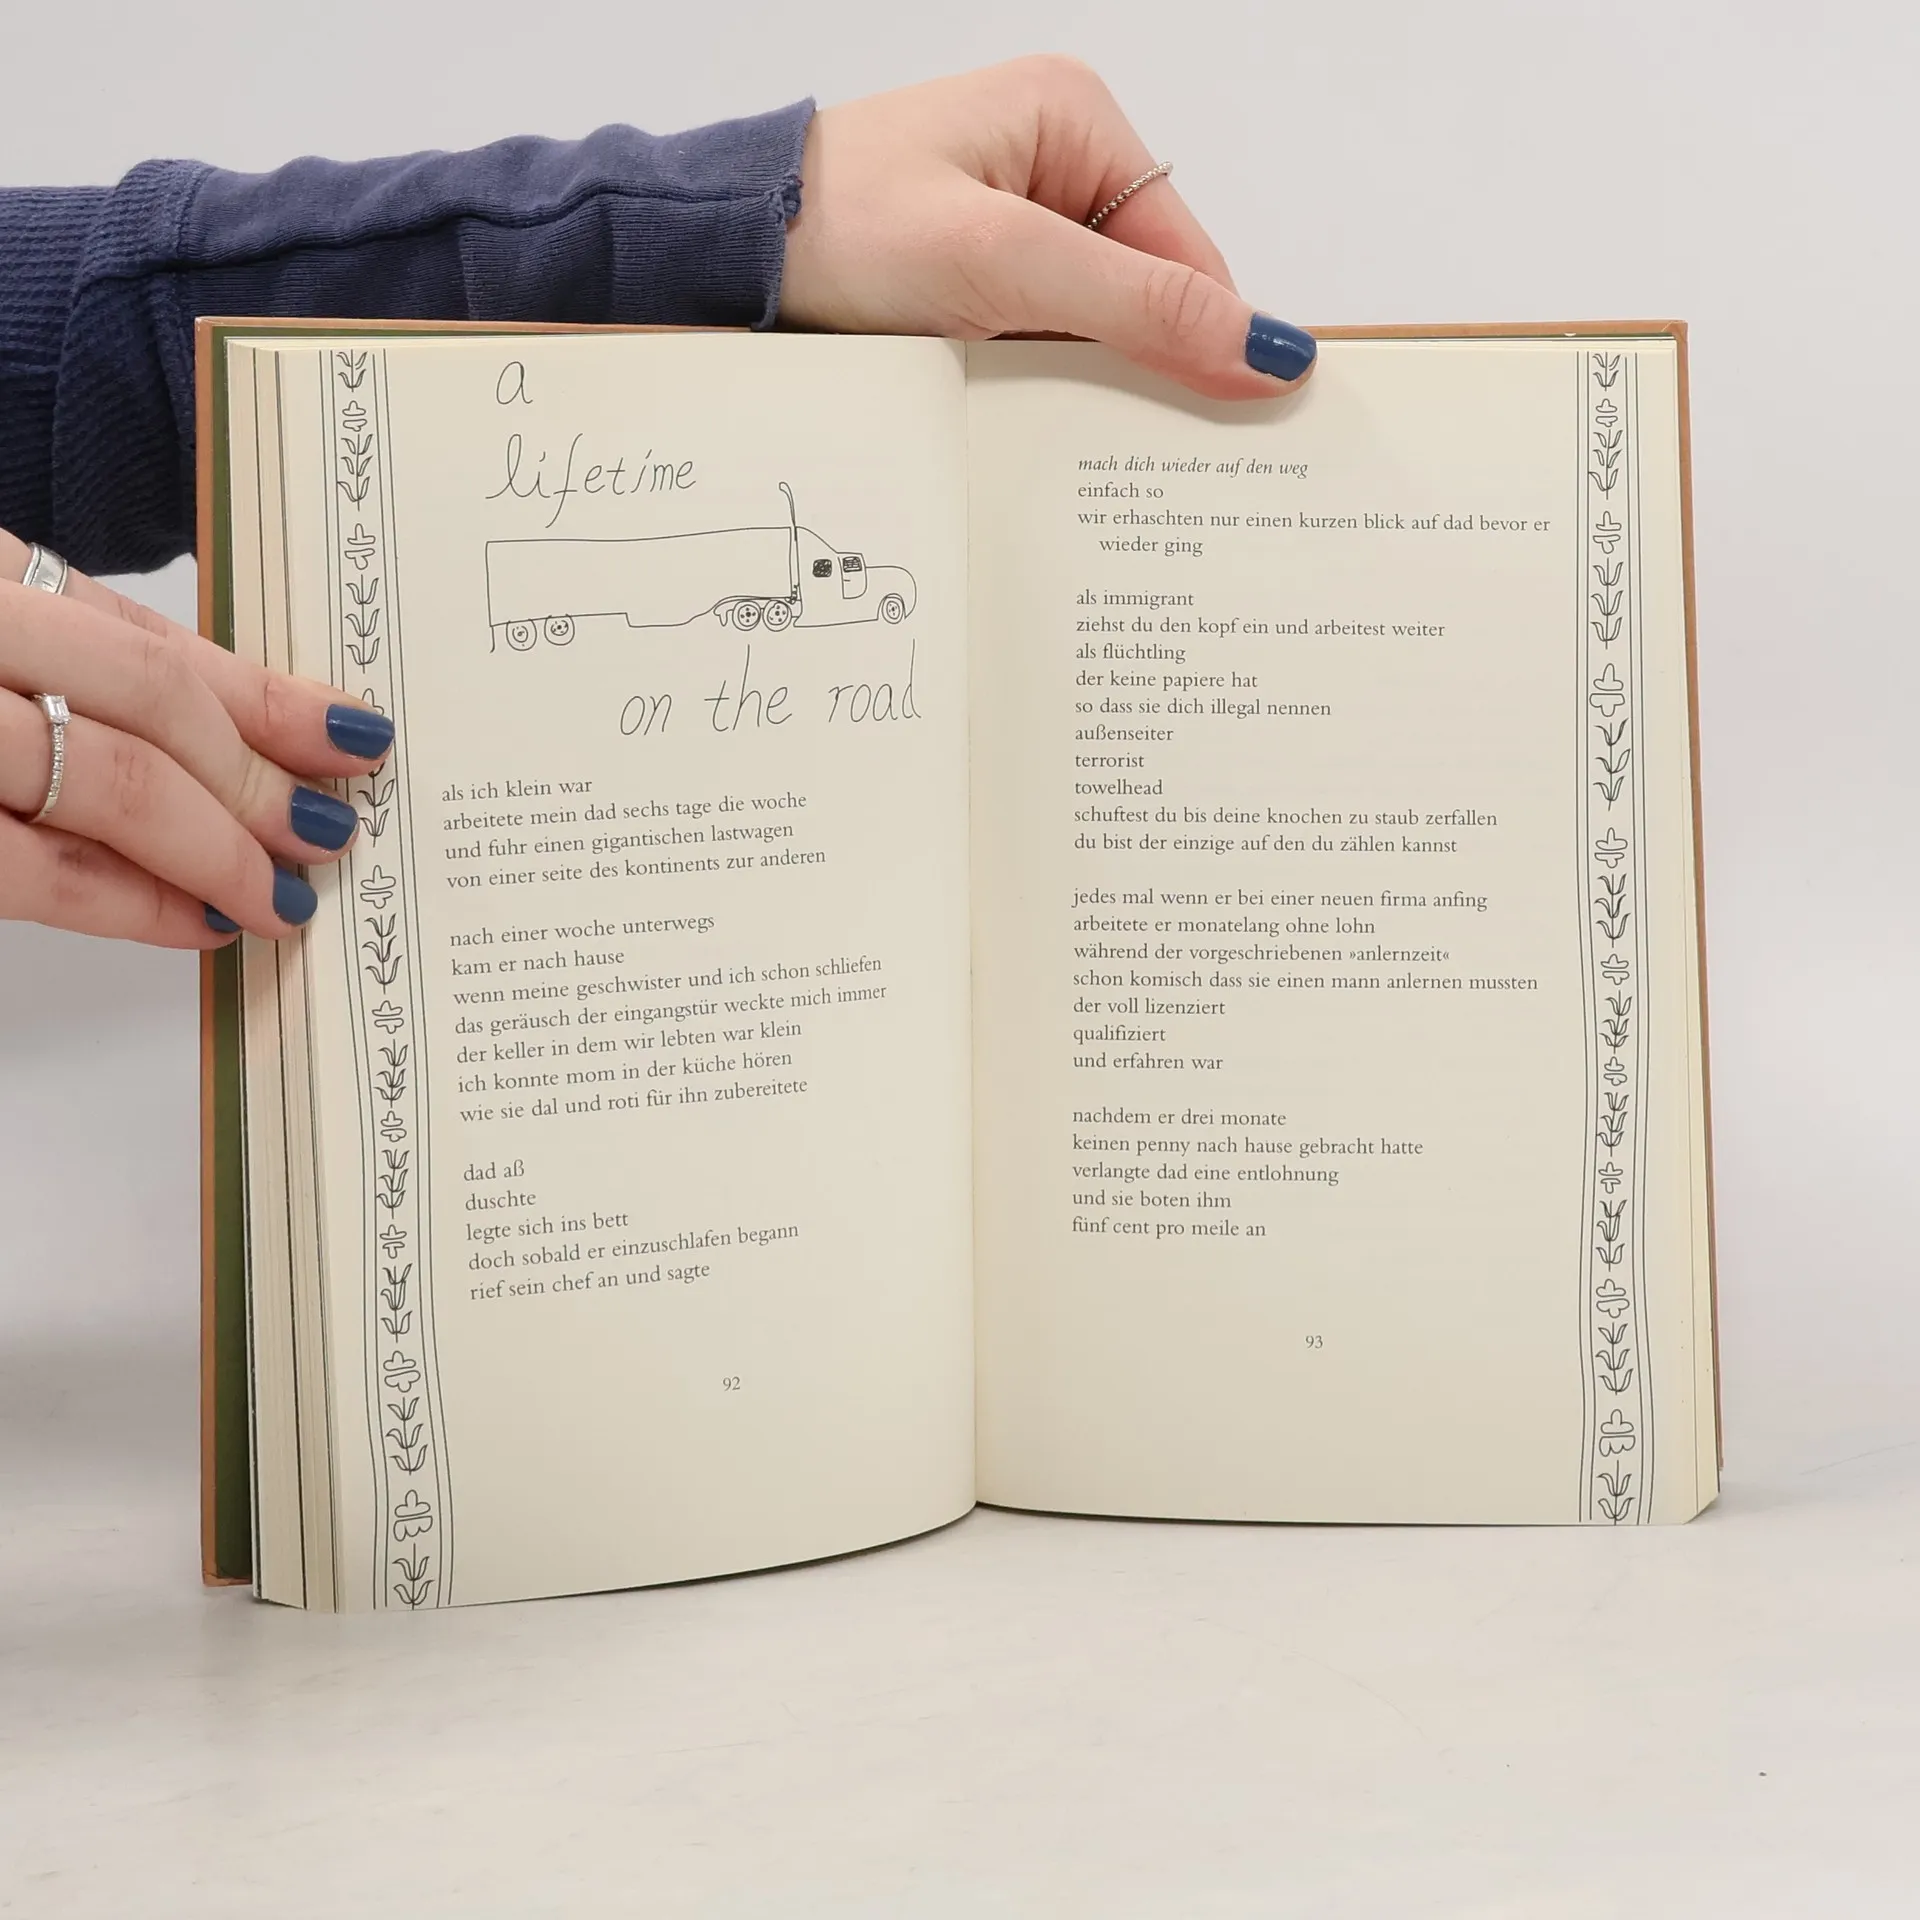 a
lifetime
on the road
als ich klein war
arbeitete mein dad sechs tage die woche
und fuhr einen gigantischen lastwagen
von einer seite des kontinents zur anderen
nach einer woche unterwegs
kam er nach hause
wenn meine geschwister und ich schon schliefen
das geräusch der eingangstür weckte mich immer
der keller in dem wir lebten war klein
ich konnte mom in der küche hören
wie sie dal und roti für ihn zubereitete
dad aß
duschte
legte sich ins bett
doch sobald er einzuschlafen begann
rief sein chef an und sagte
92
mach dich wieder auf den weg
einfach so
wir erhaschten nur einen kurzen blick auf dad bevor er
wieder ging
als immigrant
ziehst du den kopf ein und arbeitest weiter
als flüchtling
der keine papiere hat
so dass sie dich illegal nennen
außenseiter
terrorist
towelhead
schuftest du bis deine knochen zu staub zerfallen
du bist der einzige auf den du zählen kannst
jedes mal wenn er bei einer neuen firma anfing
arbeitete er monatelang ohne lohn
während der vorgeschriebenen »anlernzeit«
schon komisch dass sie einen mann anlernen mussten
der voll lizenziert
qualifiziert
und erfahren war
nachdem er drei monate
keinen penny nach hause gebracht hatte
verlangte dad eine entlohnung
und sie boten ihm
fünf cent pro meile an
93